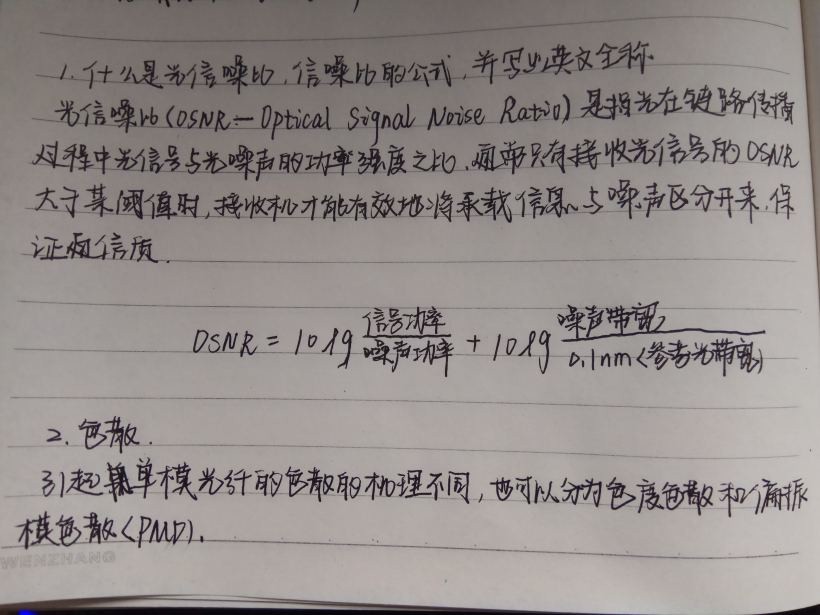 1. 什么是光信噪比,信噪比的公式,并写出英文全称
光信噪比(OSNR-Optical Signal Noise Ratio)是指光在链路传播
过程中光信号与光噪声的功率强度之比,通常只有接收光信号的OSNR
大于某阈值时,接收机才能有效地将承载信息与噪声区分开来,保
证通信质.
OSNR = 10lg 信号功率/噪声功率 + 10lg 噪声带宽/0.1nm(参考光带宽)
2. 色散.
引起单模光纤的色散的机理不同,也可以分为色度色散和偏振
模色散(PMD).
WENZHANG